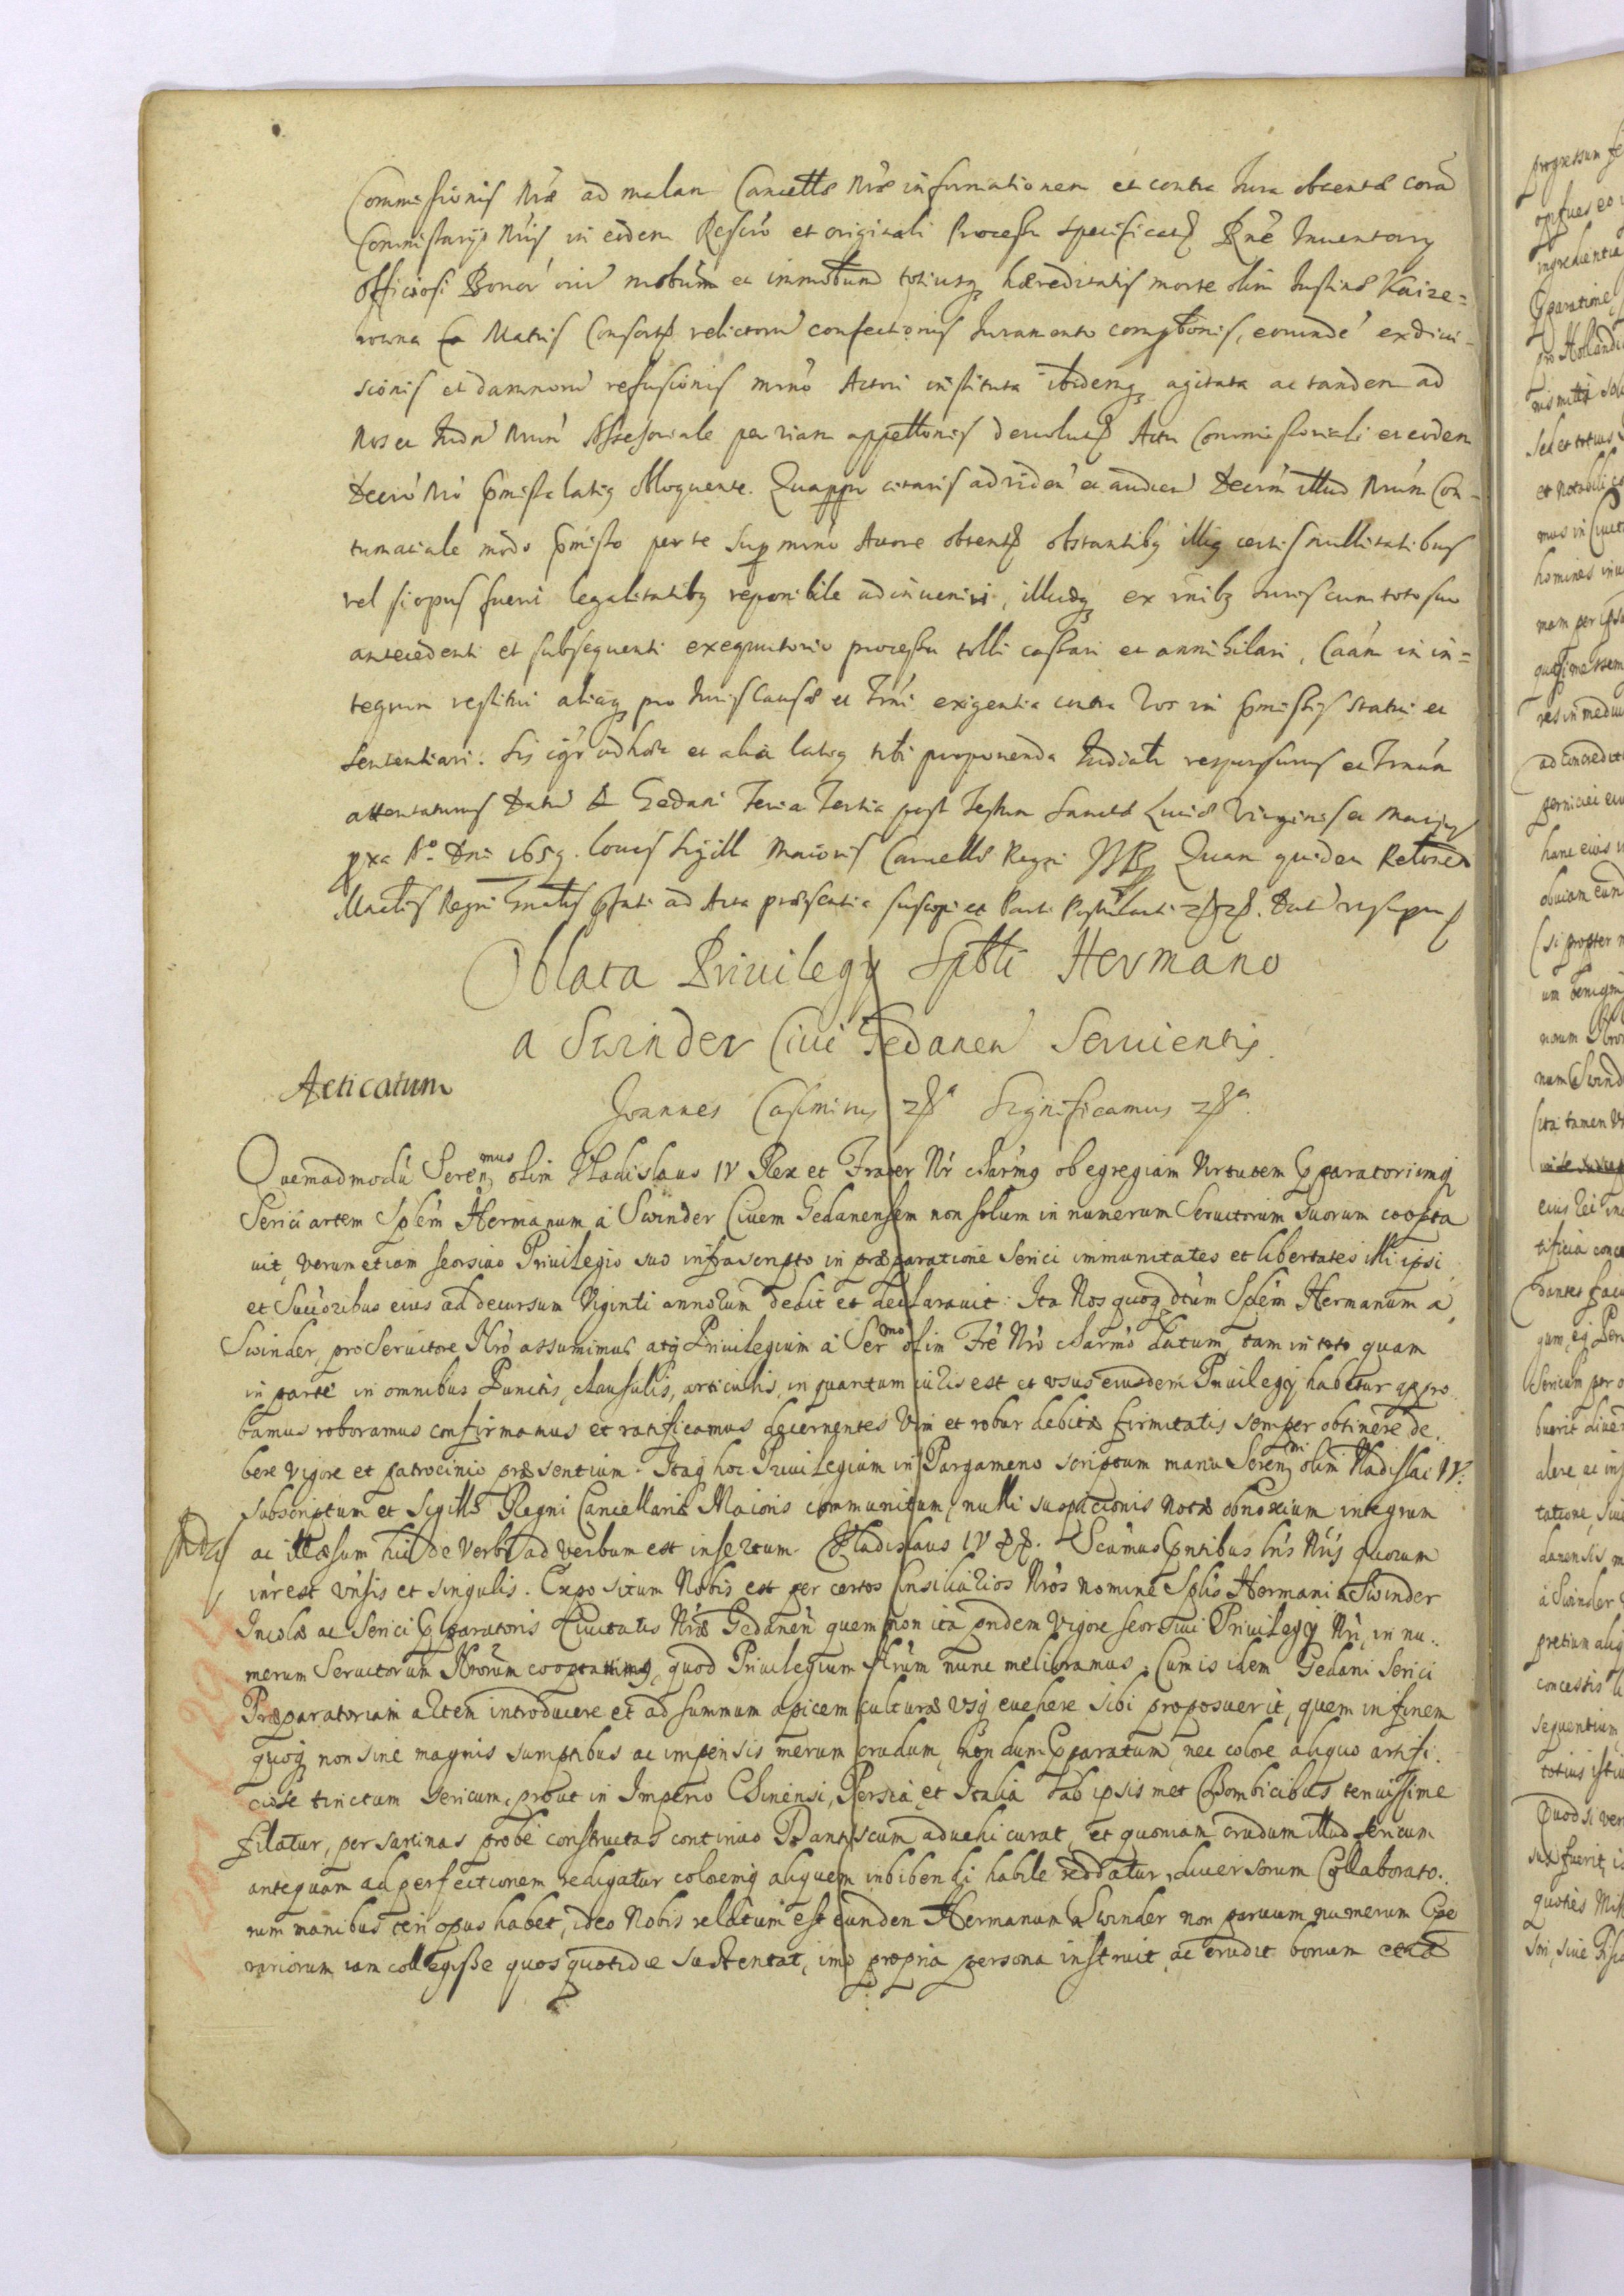 Commissionis Nræ ad malam Cancellæ Nræ informationem et contra Jura obtentæ corã
Commissarijs Nris in eidem Rescró et originali Processu specificatis Rnẽ Inventarij
officiosi Bonor' oiũ mobiũm et immobium totiusq hæreditatis morte olim Justinæ Kaize=
rowna Ea Matris Consortis relictorũ confectionis Juramento comptionis, eorundẽ exdivi-
sionis et damnorũ refusionis mño Actrii instituta ibidemq agitata ac tandem ad
Nos et Judm Nrum Assessoriale per viam appellonis devolutis Actu Commissoriali et eodem
Decró Nró pmissa latiq eloquente. Quappr citaris ad videñ et audien Decrm illud Nrum Con-
tumaciale modo pmisso per te Sup mimo Actore obtentis obstantibq illiq certis nullitatibus
vel si opus fuerit legalitatibq reponibile adinveniri, illudq ex vnibq Juris cum toto suo
antecedenti et subsequenti exequutorio processu tolli cassari et annihilari, Caám in in=
tegrum restitui aliaq pro Juris Causæ et Trni exigentia contra Vos in pmissis statui et
sententiari. Sis igr adhoc et alia latiq tibi proponenda Judiciale responsurus et Trnum
attentaturus Datũ Gedani Feria Tertia post Festum Sanctæ Luciæ Virginis et Martyris
pxa Ao Dni 1659. Locus Sigill Maioris Cancellæ Regni Quam quidem
Mactis Regni Gnalis pfati ad Acta præsentia suscepi et Parti Postulanti Datũ vt supra
Oblata Privilegij Spbli Hermano
a Swinder Civi Gedanen Servientis.
Acticatum
Joannes Casimirus Significamus
Quemadmodũ Serenmus olim Vladislaus IV Rex et Frater Nr charmq ob egregiam Virtutem Pparatoriamq
Serici artem Splem Hermanum à Swinder Civem Gedanensem non solum in numerum Servitorum Suorum coopta
vit, verum etiam seorsivo Privilegio suo infrascripto in præparatione Serici immunitates et libertates illi ipsi,
et Succoribus eius ad decursum Viginti annorum dedit et declaravit: Ita Nos quoq dtum Splem Hermanum a
Swinder, pro Servitore Nro assumimus atq Privilegium à Sermo olim Fre Nro charmo datum, tam in toto quam
in parte in omnibus Punctis, clausulis, articulis, in quantum iuris est et vsus eiusdem Privilegij habetur appro
bamus roboramus confirmamus et ratificamus decernentes Vim et robur debitæ firmitatis semper obtinere de..
bere vigore et patrocinio præsentium. Itaq hoc Privilegium in Pargameno scriptum manu Serenmi olim Vladislai IV.
subscriptum et Sigillo Regni Cancellariæ Maioris communitum, nulli suspicionis notæ obnoxium integrum
ac illæsum hic de Verbo ad verbum est insertum. Vladislaus IV Scamus Pntibus Lris Nris quorum
inrest vnsis et singulis. Expositum Nobis est per certos Consiliarios Nros nomine Splis Hermani a Swinder
Incolæ ac Serici Pparatoris Civitatis Nræ Gedanen quem non ita pridem Vigore seorsivi Privilegij Nri, in nu..
merum Servitorum Nrorum cooptavimq, quod Privilegium Nrum nunc melioramus. Cum is idem Gedani Serici
Præparatoriam artem introducere et ad summum apicem culturæ vsq evehere sibi proposuerit, quem in finem
quoq non sine magnis sumptibus ac impensis merum crudum, non dum Pparatum, nec colore aliquo artifi.
ciose tinctum Sericum, prout in Imperio Chinensi, Persia et Italia ab ipsis met Bombicibus tenuissime
filatur, per sarcinas probe constructas continuo Dantiscum advehi curat, et quoniam crudum illud sericum
antequam ad perfectionem redigatur coloremq aliquem inbibendi habile reddatur, diversorum Collaborato..
rum manibus teri opus habet, ideo Nobis relatum est eundem Hermanum a Swinder non parvum numerum Ope
rariorum iam collegisse quos quotidie sustentat, imo propria persona instruit, ac erudit bonum